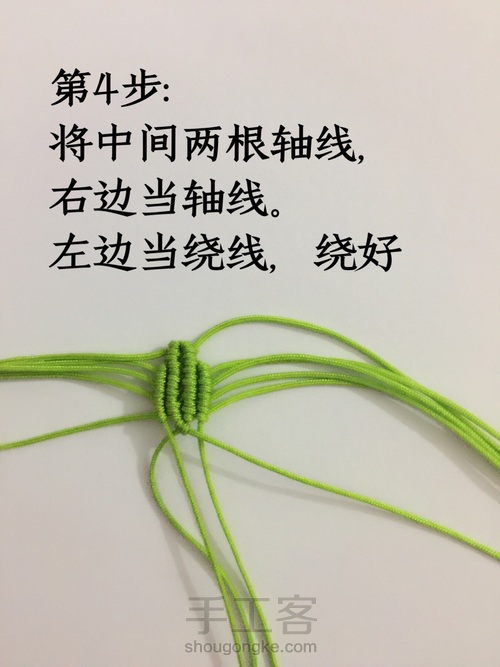 第4步:
将中间两根轴线,
右边当轴线。
左边当绕线, 绕好
手工客
shougongke.com